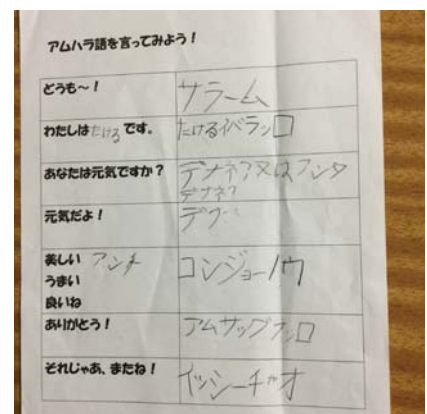 アムハラ語を言ってみよう！
どうも〜！
サラーム
わたしはたける です。
たけるイバラッロ
あなたは元気ですか？
デナネア又はアンタ
デナネア
元気だよ！
デナ
美しい アンチ
うまい
良いね
コンジョーノウ
ありがとう！
アムサッグナロ
それじゃあ、またね！
イッシーチャオ